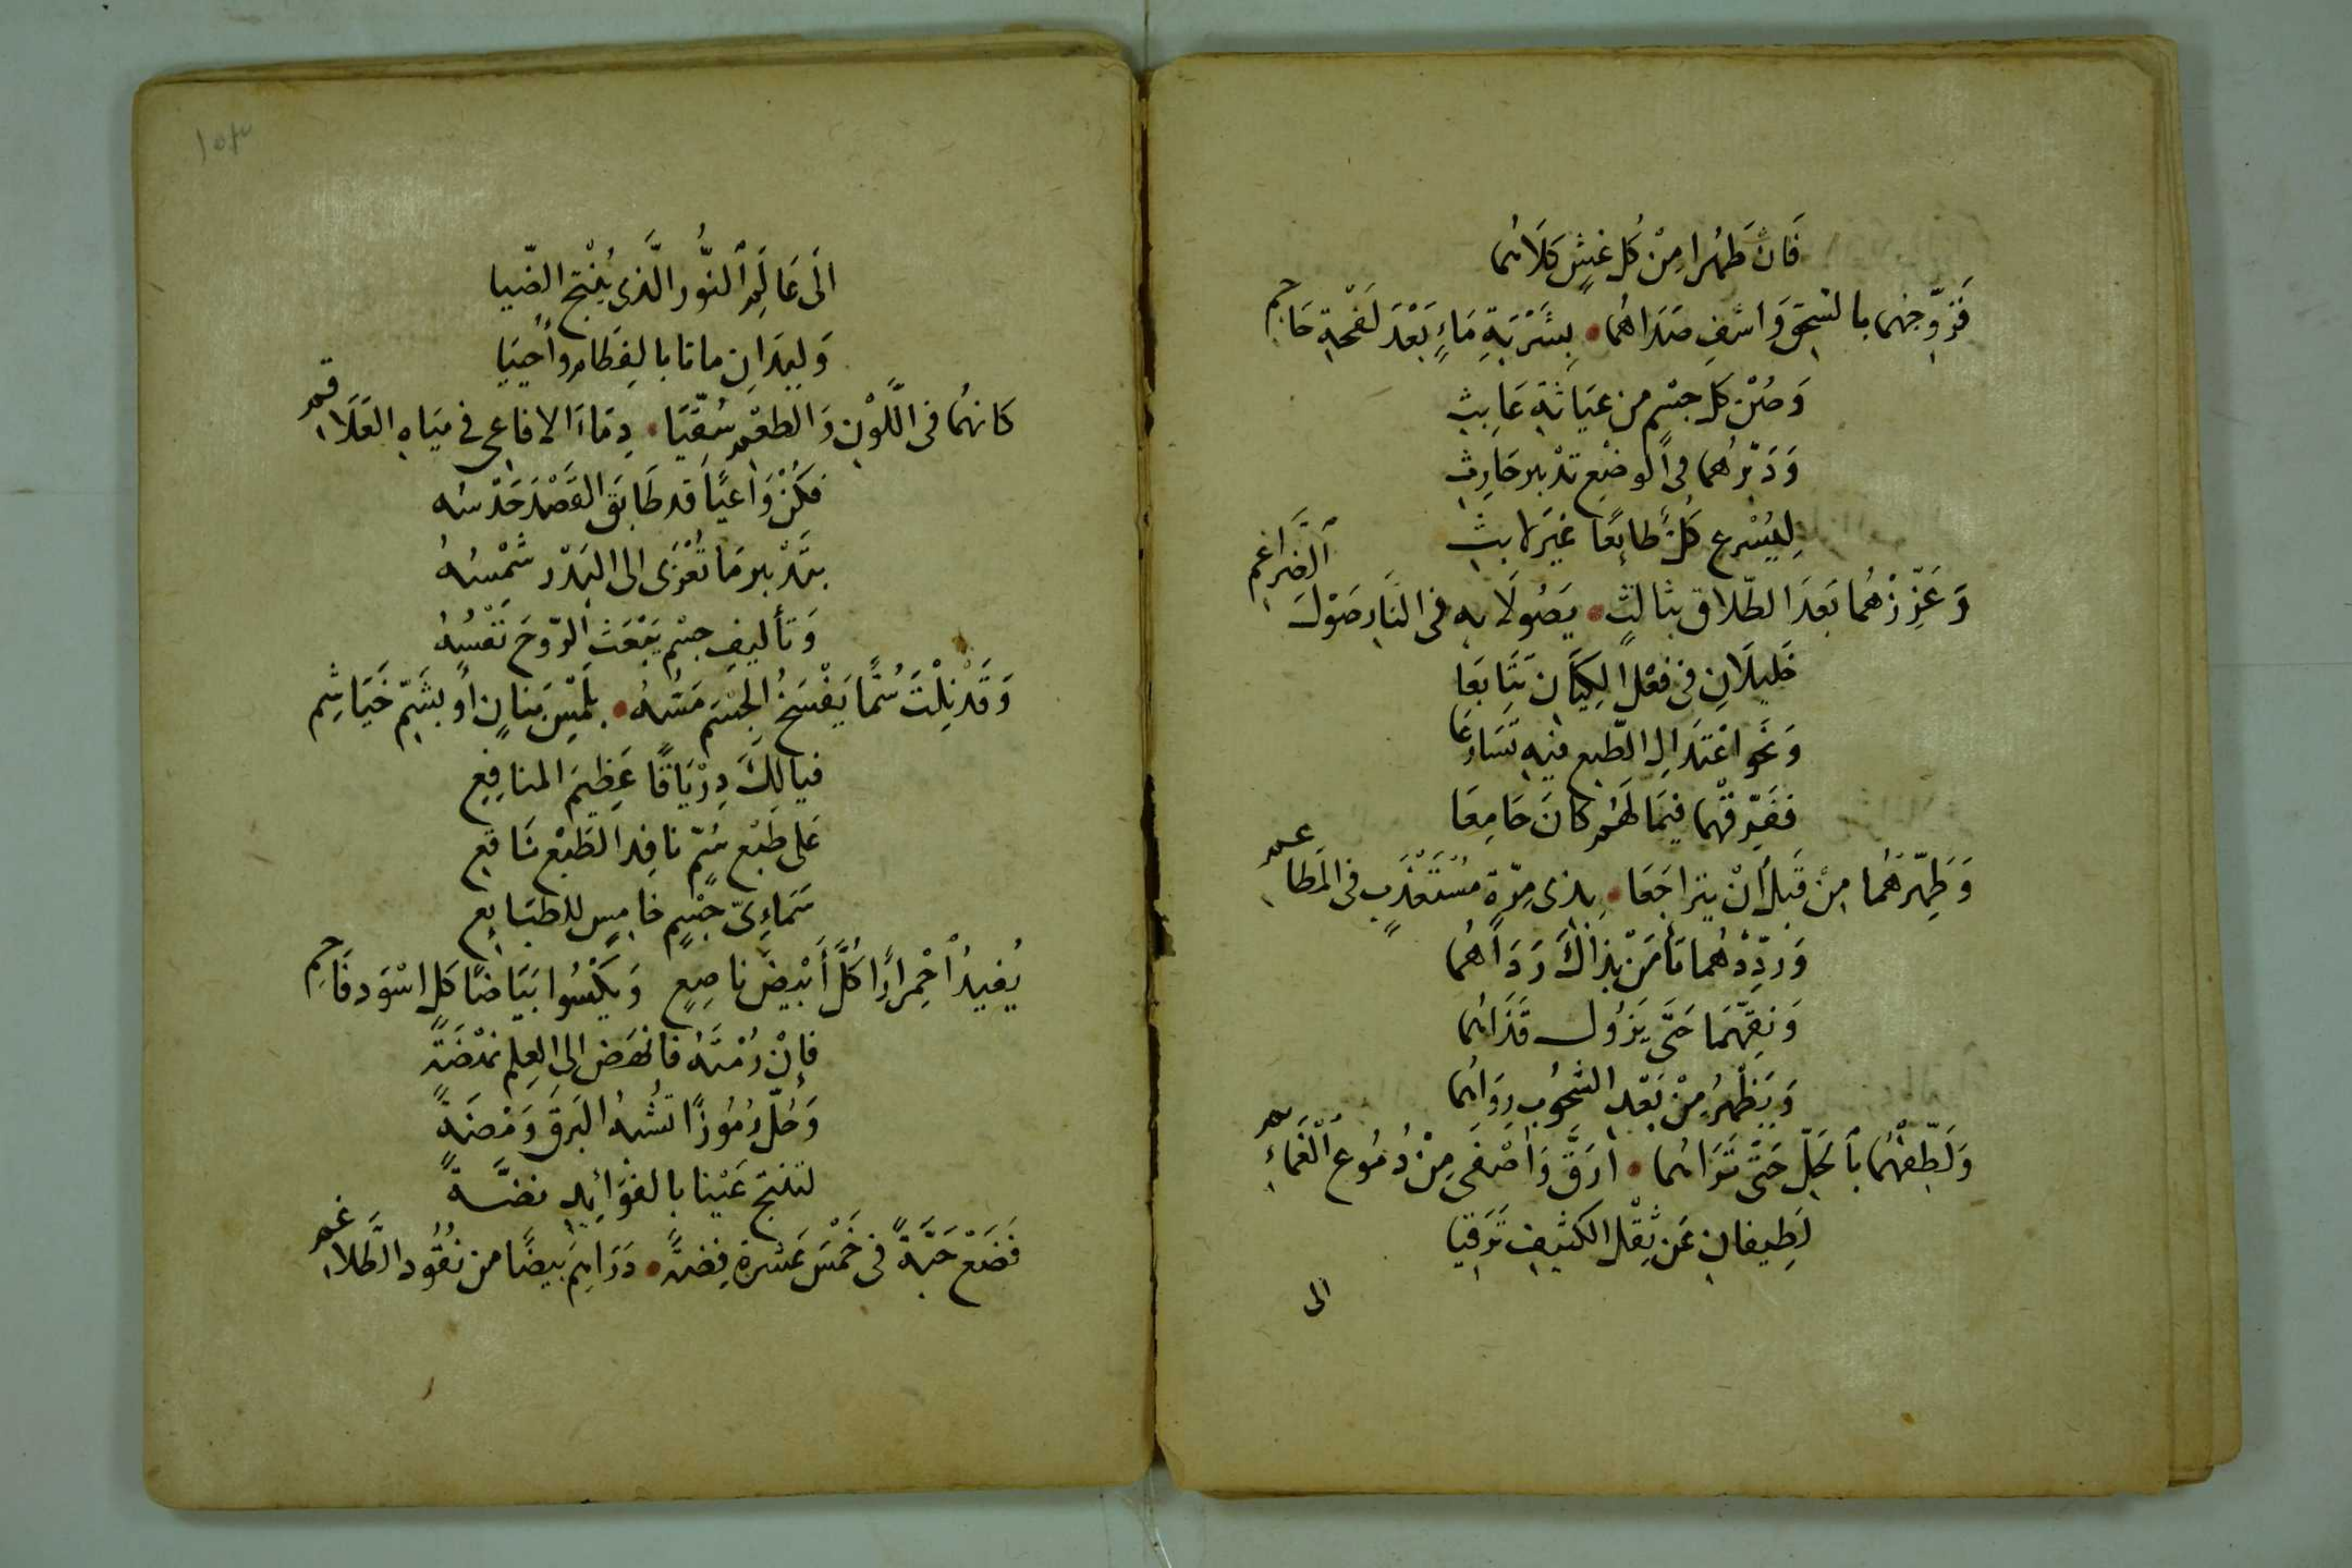 فَان طَهُرا مِنْ كُل غشٍ كَلَاهُما
فَزوّجهُما بالسَحق وَاشفِ صَدَاهُما • بِشَرْبَةِ مَاءٍ بَعْدَ لَفحَةِ حَاجم
وَصُنْ كل جسْمٍ من عَيَاثة عَابِث
وَدَبّرهُما فى الوضْع تدْبير حَارِث
لِيُسْرع كُلٌ طايعًا غَيرَ لابث
وَعَزِّزْهُمَا بَعدَ الطّلاق بثالثٍ • يَصُولَا به فى النَار صَوْلَ الضَراغم
خَليلَانِ فى فعْل الكِيَان تتَابَعَا
وَنَحو اعْتدَالِ الطّبع فيه تسَارعَا
ففَرّقهُما فيمَا لهَم كانَ جَامِعَا
وَطَهّرهُما مِنْ قَبل أنْ يتراجَعَا • بذى مِرّةٍ مُسْتعْذبٍ فى المَطاعم
وَردِّدْهُما تأمَنْ بذاكَ رَدَاهُما
وَنقّهمَا حَتى يَزُول قَذَاهُما
وَيَظْهرُ مِنْ بَعْد الشُحُوب رِوَاهُما
وَلَطّفْهُما بالحَلّ حَتى تَرَاهُما • ارَقَّ وَاصْفَى مِنْ دُمُوع الْغَمائم
لَطِيفانِ عَن ثِقْل الكثيفِ تَرَقيَا
الى
١٥٣
الَى عَالَمِ النُّور الَّذى يُنْتج الضّيا
وَليدَانِ ماتا بالفِطَام وأُحْييَا
كانهُما فى اللَّوْنِ وَالطعْم سُقّيَا • دِمَاءَ الافاعى فى ميَاهِ العَلَاقم
فكُنْ وَاعيًا قد طَابَقَ القَصْدَ حَدْسُه
بتَدْبير مَا تُعْزَى الى البَدْر شَمْسُهُ
وَتأليفِ جسْمٍ يَبْعَثُ الرّوحَ نَفْسُهُ
وَقَدْ نِلْتَ سُمًّا يَفْسَخُ الجسْمَ مَسُّهُ • بلَمْسِ بَنانٍ أوْ بشَمّ خَيَاشِم
فيا لكَ دِرْيَاقًا عَظِيمَ المنافِع
عَلى طَبْع سُمّ نافِذ الطَبْع نَاقع
سَمَاءِىّ جسْمٍ خامسٍ للطبَايع
يُفيدُ احْمِرارًا كُلَّ أبْيضَ ناصِعٍ وَيكْسُوا بَيَاضًا كل اسْوَد فَاحِم
فإنْ رُمْتَهُ فانْهَضْ الى العِلم نَهْضَةً
وَحُلّ رُمُوزًا تُشْبهُ البَرقَ وَمْضَةً
لتنتج عَيْنا بالفوَائِد نضَّةً
فَضَعْ حَبَّةً فى خَمْسَ عَشرة فِضةً • دَرَاهِمَ بَيضًا من نُقُود الطَّلاغم